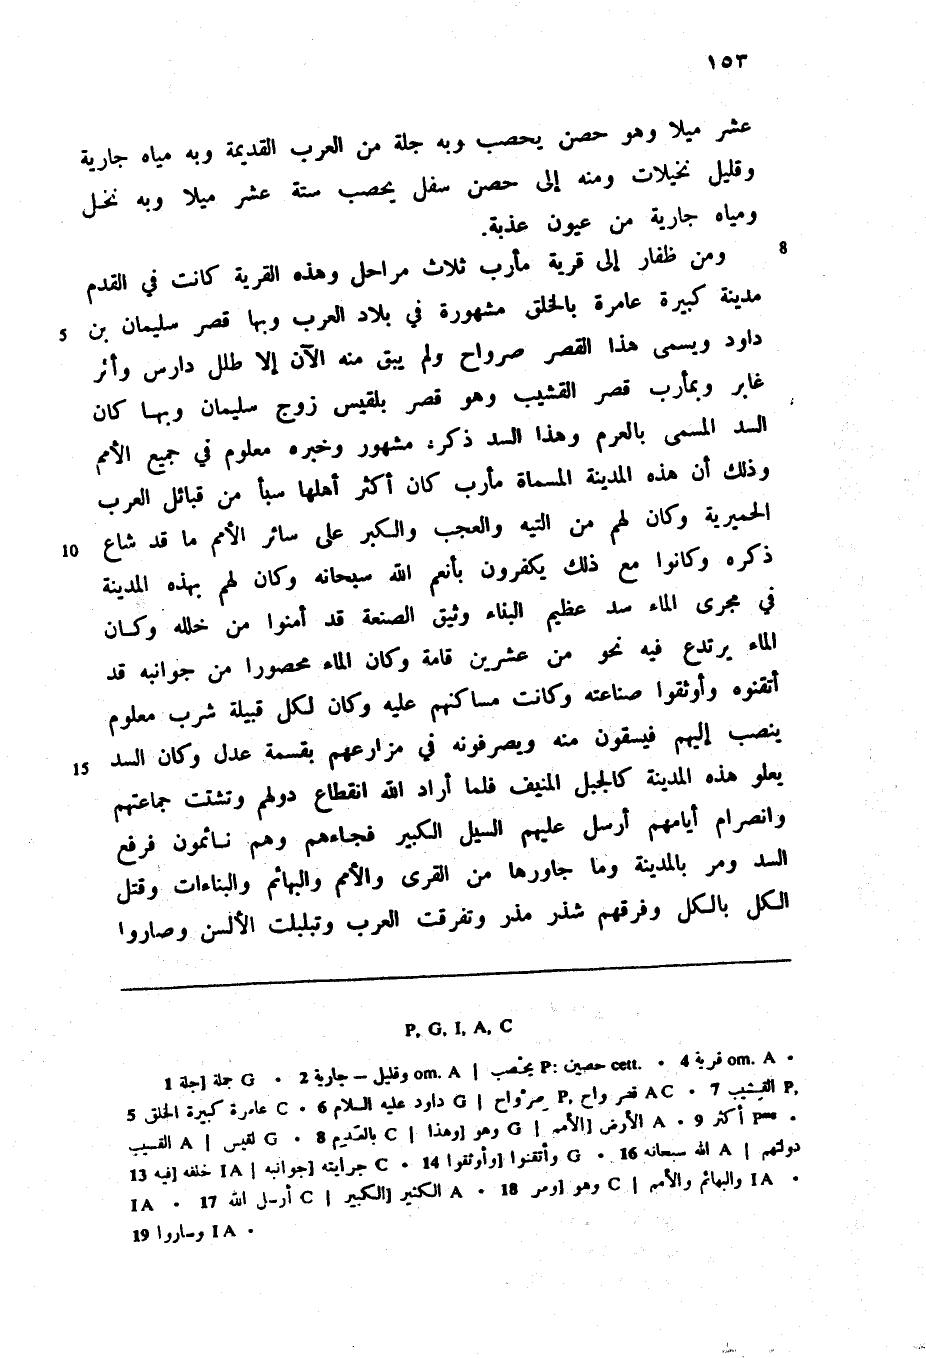 ١٥٣
عشر ميلا وهو حصن يحصب وبه جلة من العرب القديمة وبه مياه جارية
وقليل نخيلات ومنه إلى حصن سفل يحصب ستة عشر ميلا وبه نخل
ومياه جارية من عيون عذبة.
8 ومن ظفار إلى قرية مأرب ثلاث مراحل وهذه القرية كانت في القدم
مدينة كبيرة عامرة بالخلق مشهورة في بلاد العرب وبها قصر سليمان بن 5
داود ويسمى هذا القصر صرواح ولم يبق منه الآن إلا طلل دارس وأثر
غابر وبمأرب قصر القشيب وهو قصر بلقيس زوج سليمان وبها كان
السد المسمى بالعرم وهذا السد ذكره مشهور وخبره معلوم في جميع الأمم
وذلك أن هذه المدينة المسماة مأرب كان أكثر أهلها سبأ من قبائل العرب
الحميرية وكان لهم من التيه والعجب والكبر على سائر الأمم ما قد شاع 10
ذكره وكانوا مع ذلك يكفرون بأنعم الله سبحانه وكان لهم بهذه المدينة
في مجرى الماء سد عظيم البناء وثيق الصنعة قد أمنوا من خلله وكان
الماء يرتدع فيه نحو من عشرين قامة وكان الماء محصورا من جوانبه قد
أتقنوه وأوثقوا صناعته وكانت مساكنهم عليه وكان لكل قبيلة شرب معلوم
ينصب إليهم فيسقون منه ويصرفونه في مزارعهم بقسمة عدل وكان السد 15
يعلو هذه المدينة كالجبل المنيف فلما أراد الله انقطاع دولهم وتشتت جماعتهم
وانصرام أيامهم أرسل عليهم السيل الكبير فجاءهم وهم نائمون فرفع
السد ومر بالمدينة وما جاورها من القرى والأمم والبهائم والبناءات وقتل
الكل بالكل وفرقهم شذر مذر وتفرقت العرب وتبلبلت الألسن وصاروا
P, G, I, A, C
1 جلة] جلة G · 2 وقليل – جارية om. A | يحصب P: حصين cett. · 4 قرية om. A ·
5 عامرة كبيرة الخلق C · 6 داود عليه السلام G | صرواح P, قصر واح AC · 7 القشيب P,
القسيب A | لقيس G · 8 بالقديم C | وهذا] وهو G | الأمم] الأرض A · 9 أكثر ·
13 فيه] خلفه IA | جوانبه] جرايته C · 14 وأوثقوا] وأتقنوا G · 16 الله سبحانه A | دولتهم
IA · 17 أرسل الله C | الكبير] الكثير A · 18 ومر] وهو C | والبهائم والأمم IA ·
19 وساروا IA ·